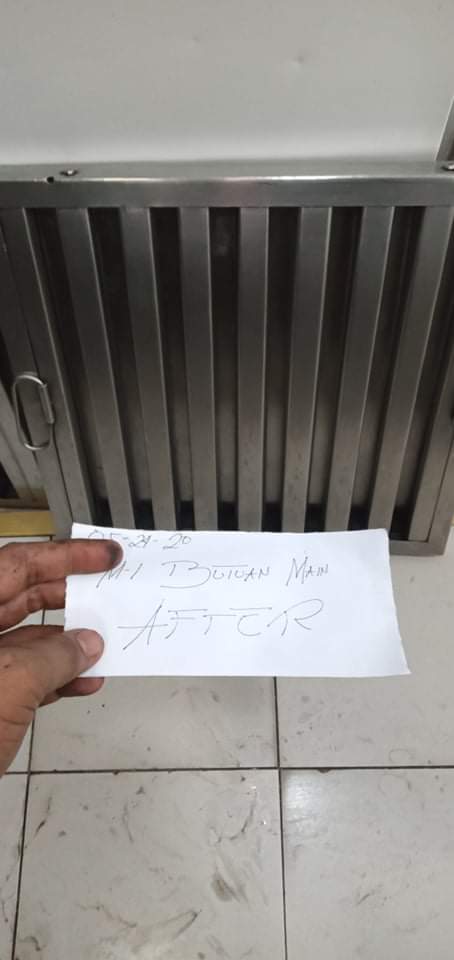 05-29-20
M-1 BUTUAN MAIN
AFTER